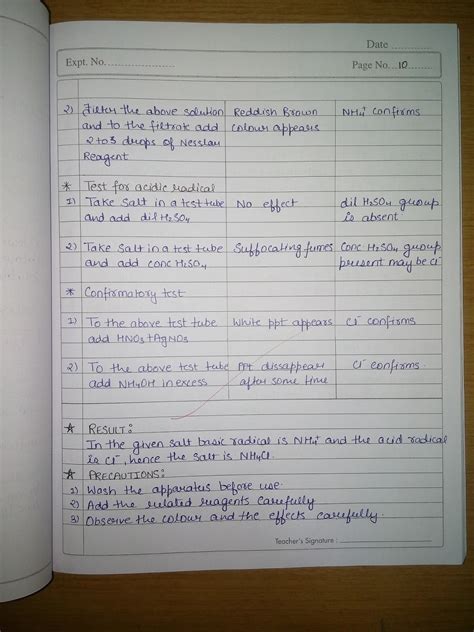 Date ............
Expt. No. ....................
Page No. ..10.......
2) Filter the above solution Reddish Brown NH₄⁺ confirms
and to the filtrate add colour appears
2 to 3 drops of Nesslar
Reagent
* Test for acidic radical
1) Take Salt in a test tube No effect dil H₂SO₄ group
and add dil H₂SO₄ is absent
2) Take Salt in a test tube Suffocating fumes Conc H₂SO₄ group
and add conc H₂SO₄ present may be Cl⁻
* Confirmatory test
1) To the above test tube White ppt appears Cl⁻ confirms
add HNO₃ + AgNO₃
2) To the above test tube Ppt dissappear Cl⁻ confirms.
add NH₄OH in excess after some time
* RESULT:
In the given salt basic radical is NH₄⁺ and the acid radical
is Cl⁻, hence the salt is NH₄Cl.
* PRECAUTIONS:
1) Wash the apparatus before use.
2) Add the related reagents carefully
3) Observe the colour and the effects carefully.
Teacher's Signature : ____________